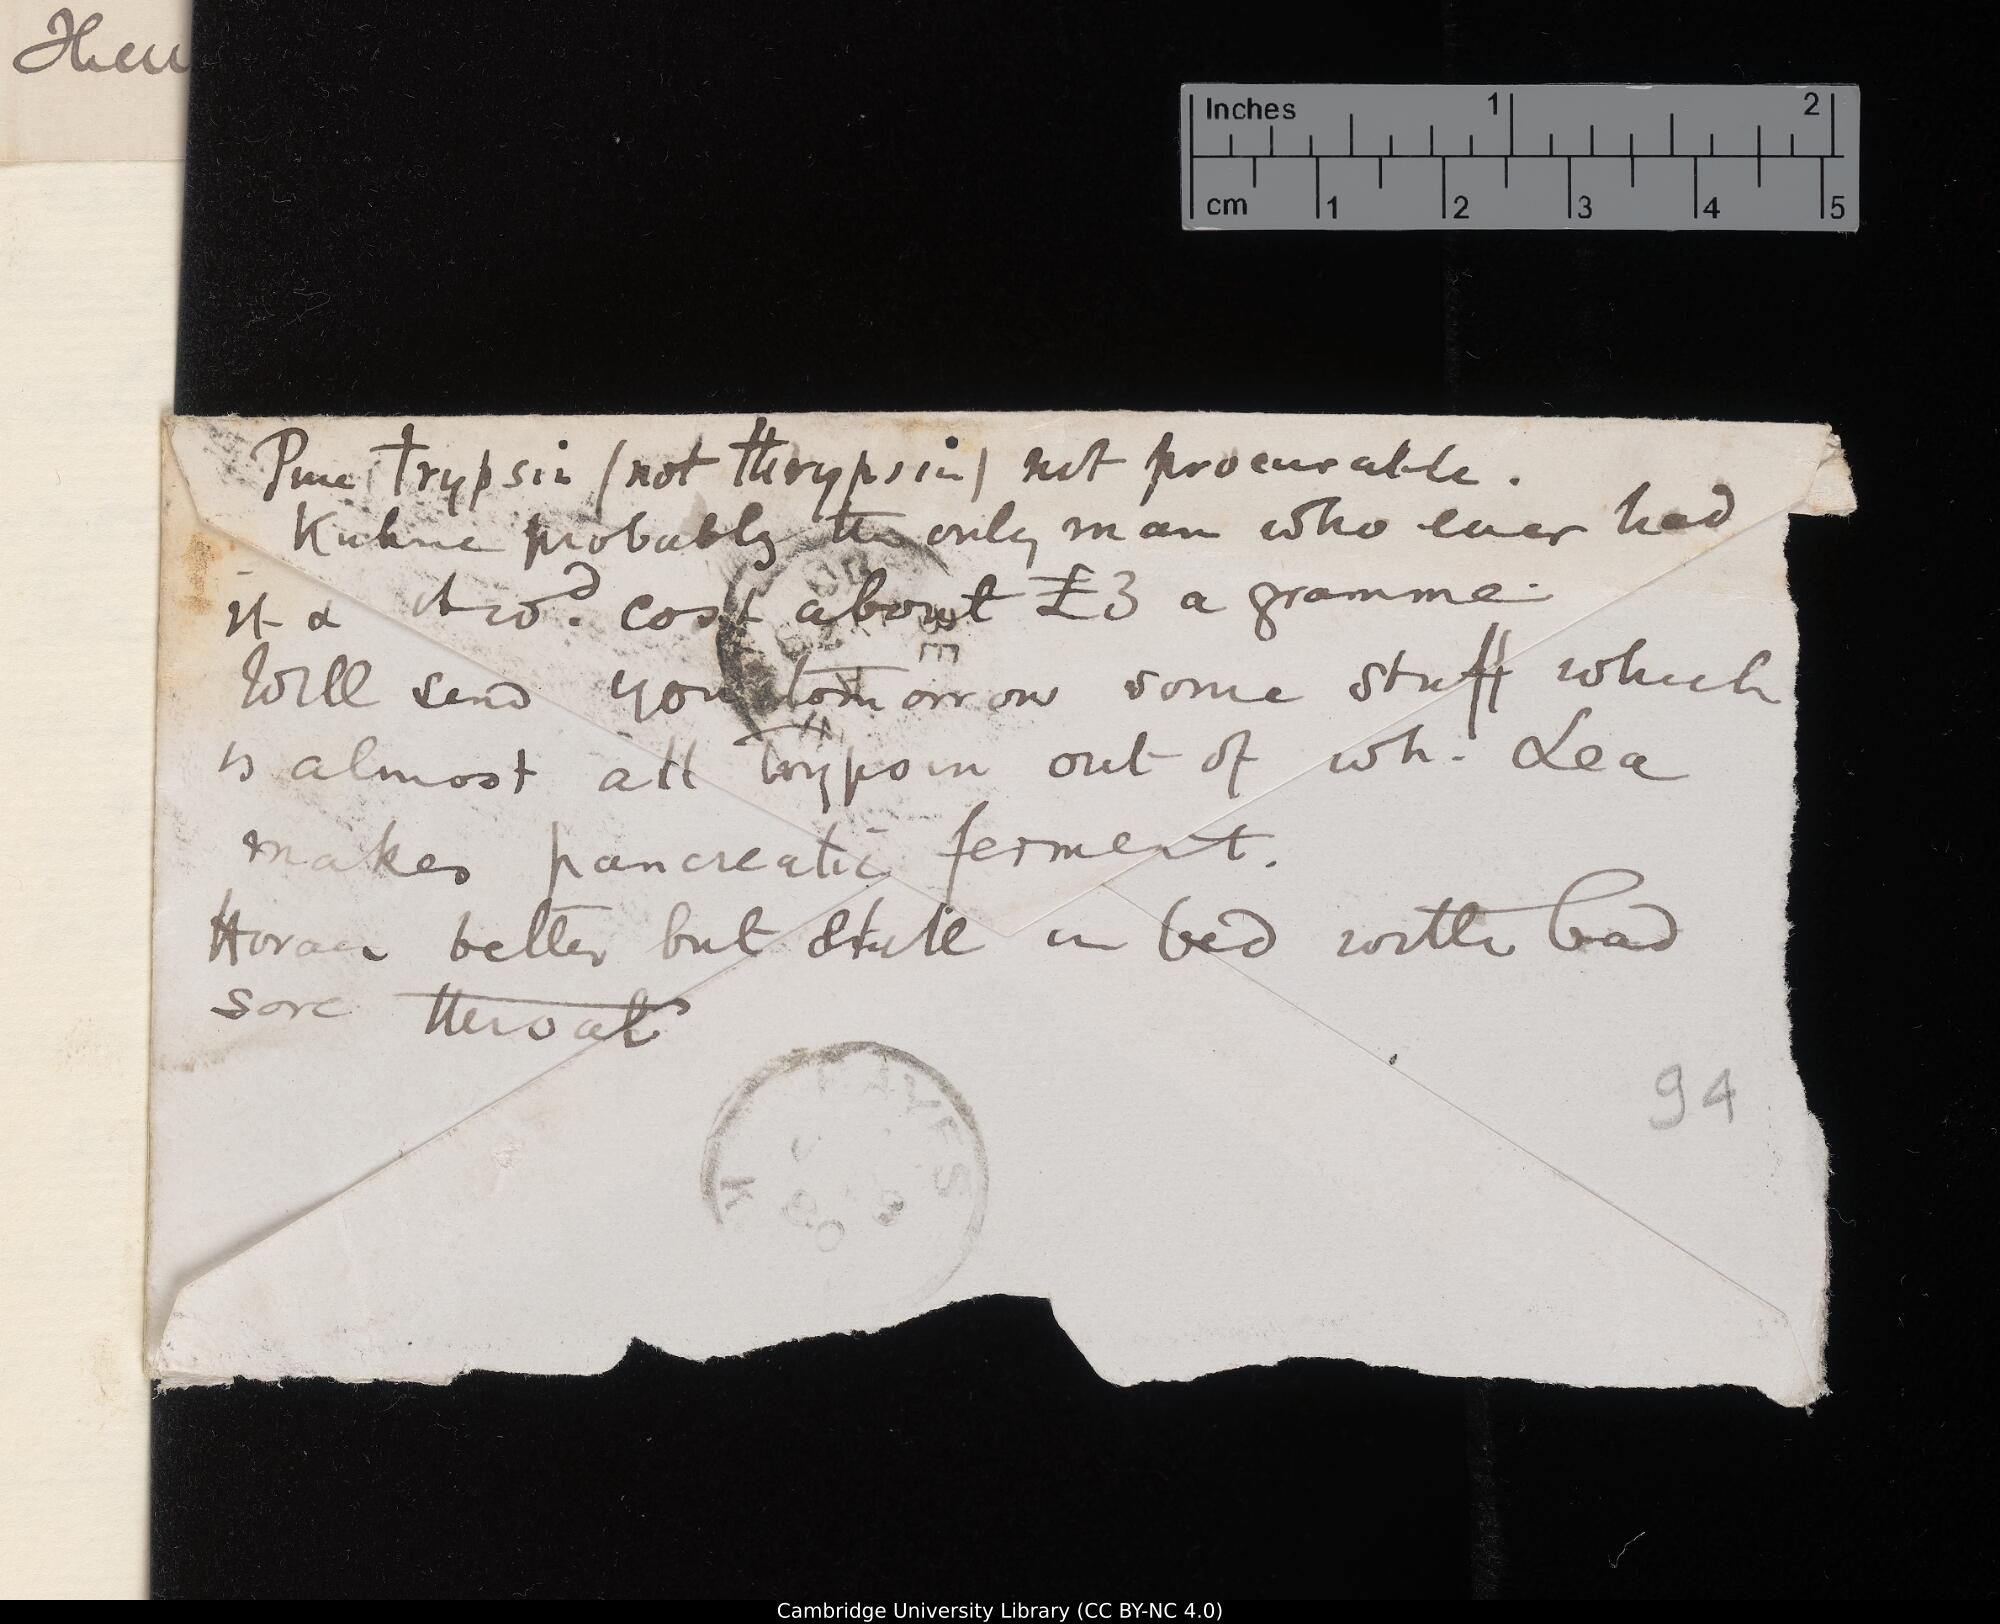 Pure trypsin (not thrypsin) not procurable.
Kuhne probably the only man who ever had
it & it wd. cost about £3 a gramme.
Will send you tomorrow some stuff which
is almost all Trypsin out of wh. Lea
makes pancreatic ferment.
Horace better but still in bed with bad
sore throat
94
Inches 1 2
cm 1 2 3 4 5
Cambridge University Library (CC BY-NC 4.0)